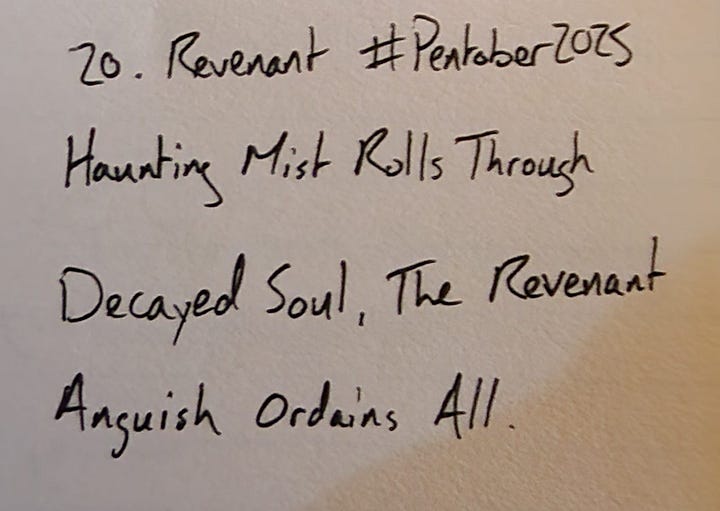 20. Revenant #Pentober2025
Haunting Mist Rolls Through
Decayed Soul, The Revenant
Anguish Ordains All.